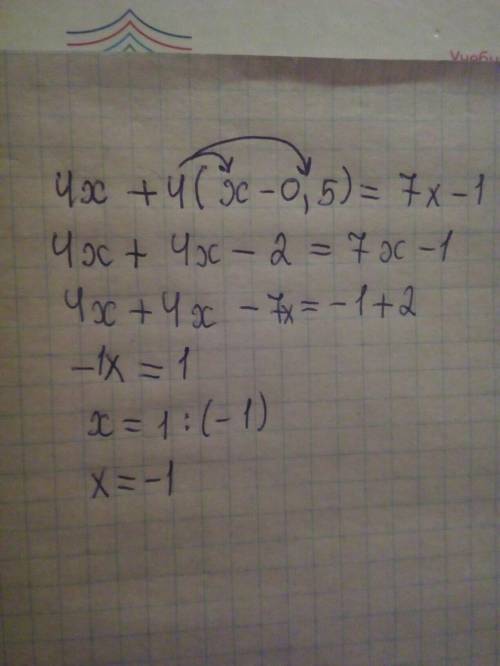 Учеби
4x + 4(x - 0,5) = 7x - 1
4x + 4x - 2 = 7x - 1
4x + 4x - 7x = -1 + 2
-1x = 1
x = 1 : (-1)
x = -1